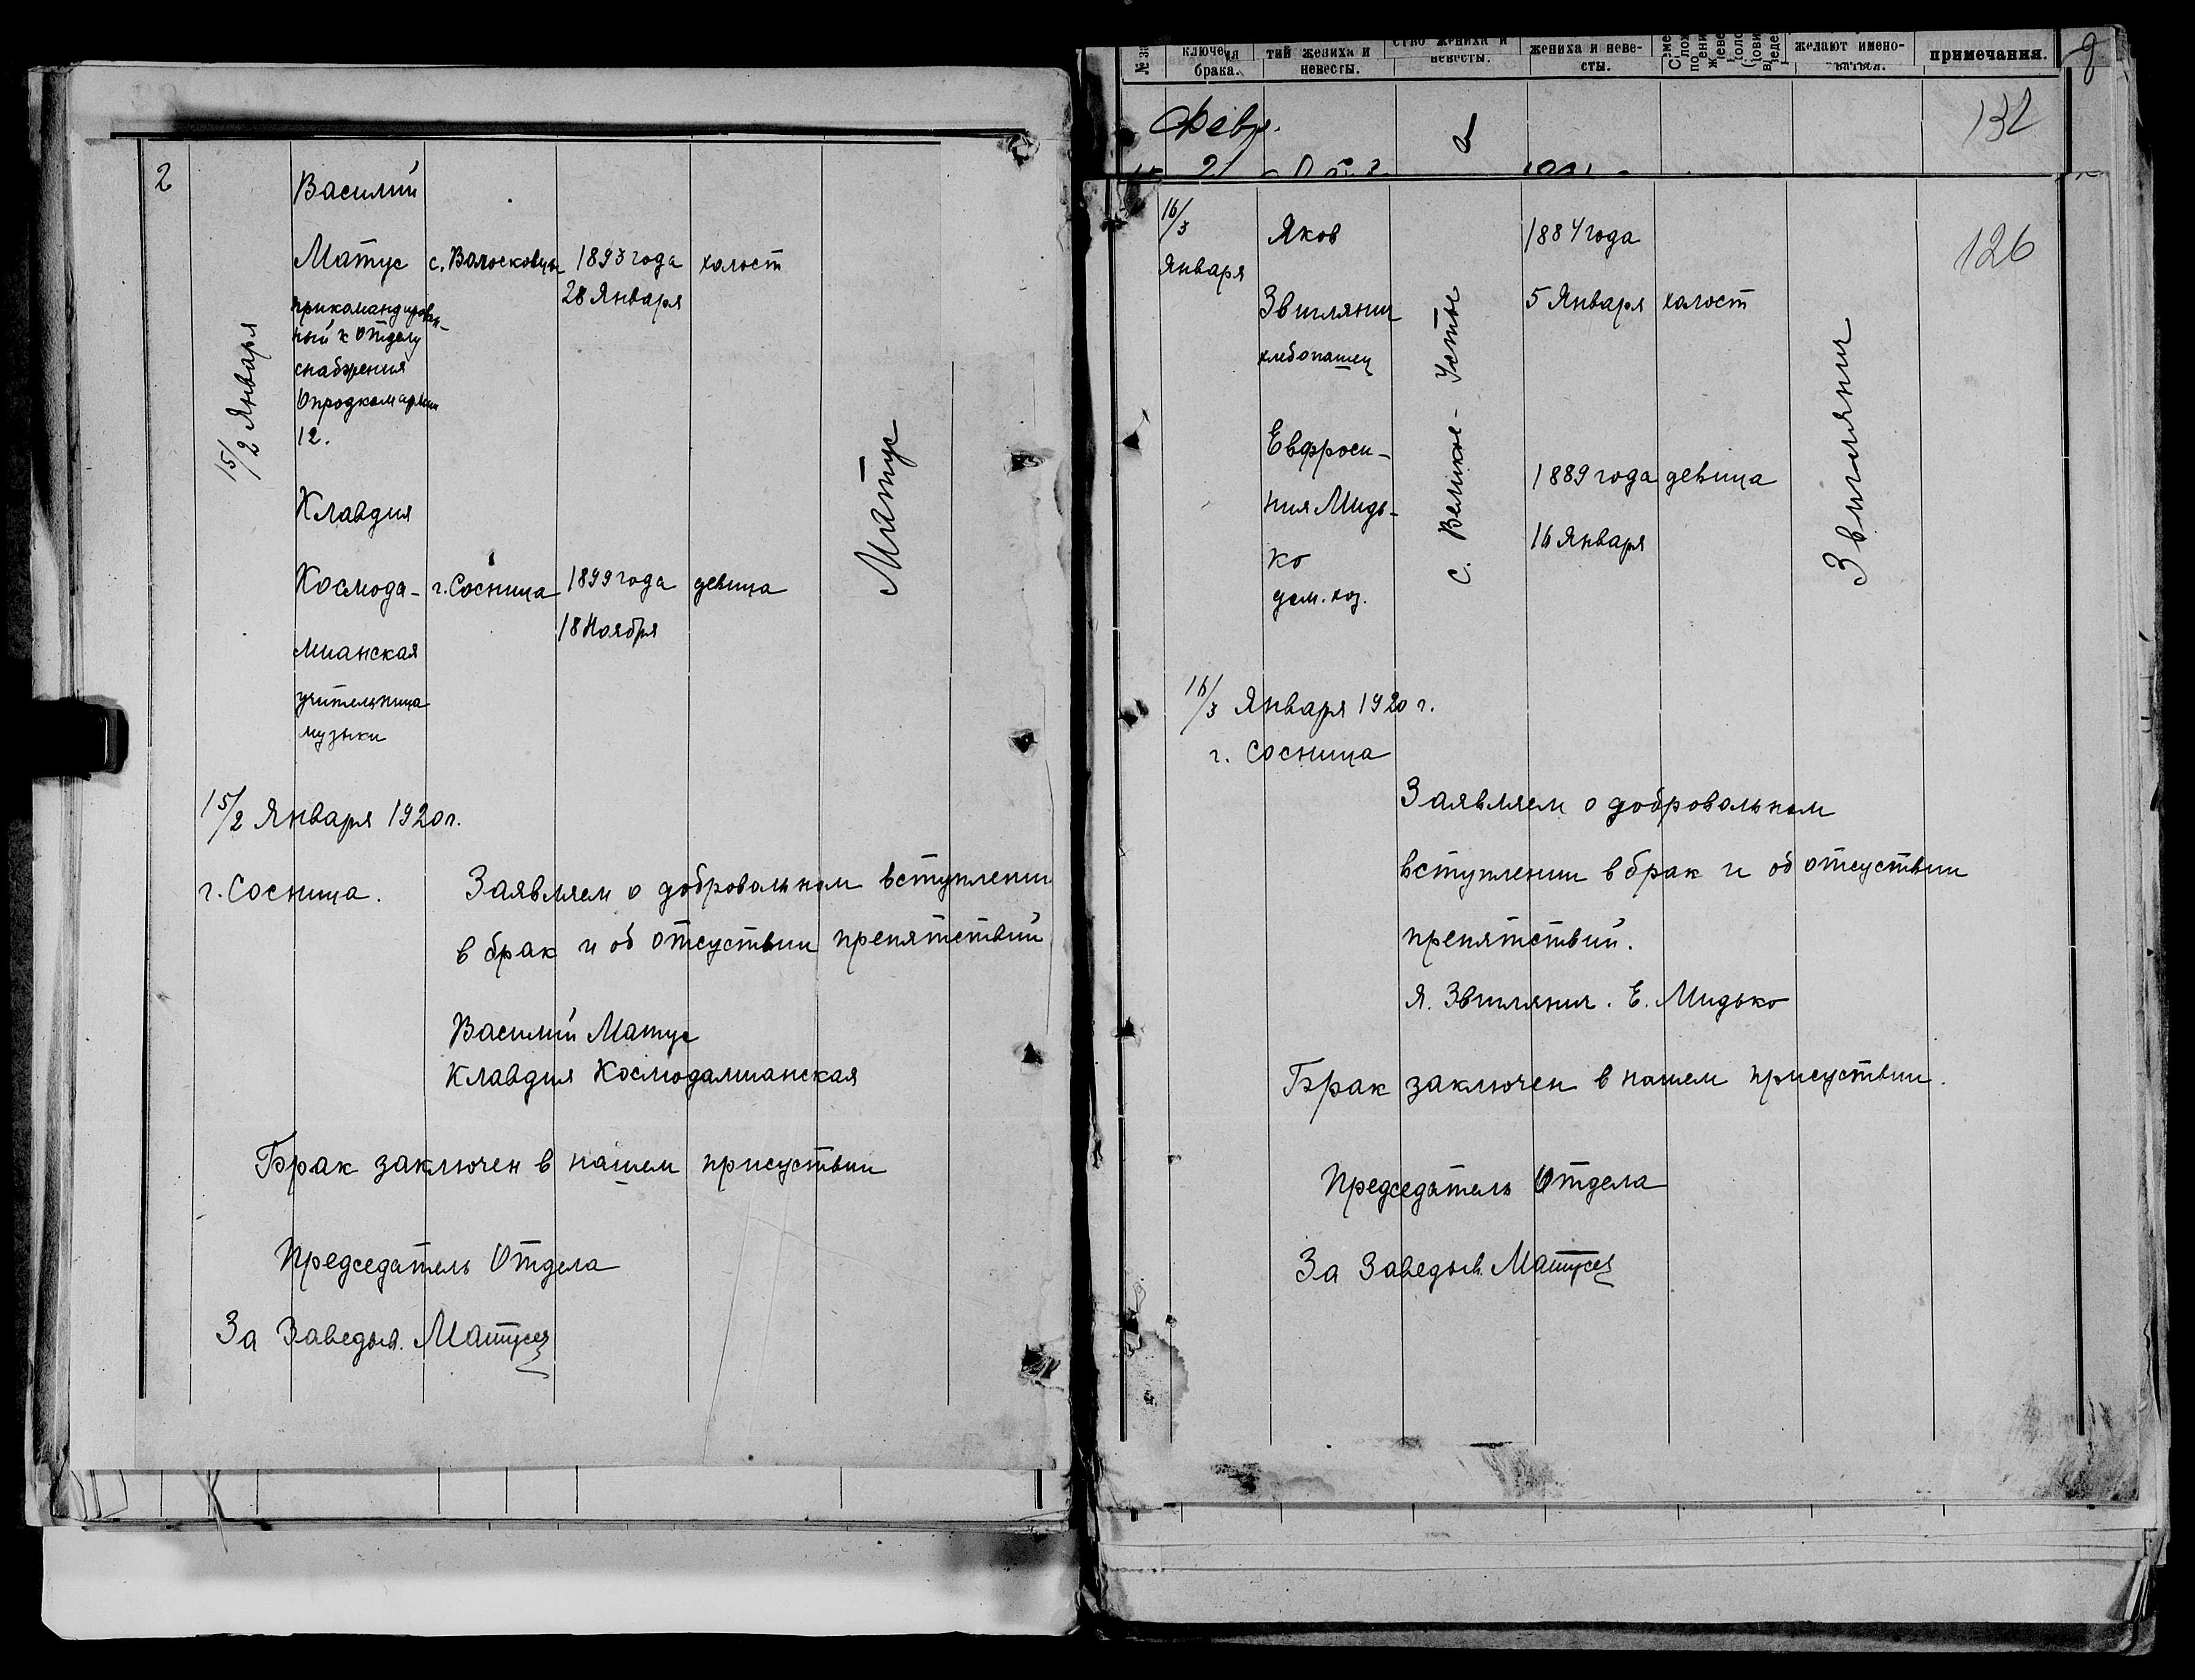 2
15/2 Января
Василий
Матус
прикомандирован-
ный к отделу
снабжения
Опродкомарми
12.
с. Волосковцы
1893 года
28 Января
холост
Клавдия
Космода-
мианская
учительница
музыки
г. Сосница
1899 года
18 Ноября
девица
Матус
15/2 Января 1920 г.
г. Сосница.
Заявляем о добровольном вступлении
в брак и об отсуствии препятствий
Василий Матус
Клавдия Космодамианская
Брак заключен в нашем присуствии
Председатель Отдела
За Заведыв.
брака.
тий жениха и
невесты.
ство жениха и
невесты.
жениха и неве-
сты.
желают имено-
ваться.
примечания.
Февр.
132
126
16/3
Января
Яков
Звилянич
хлебопашец
1884 года
5 Января
холост
Евфроси-
ния Мидь-
ко
дом. хоз.
с. Великое-Устье
1889 года
16 Января
девица
Звилянич
16/3 Января 1920 г.
г. Сосница
Заявляем о добровольном
вступлении в брак и об отсуствии
препятствий.
Я. Звилянич. Е. Мидько
Брак заключен в нашем присуствии.
Председатель Отдела
За Заведыв.